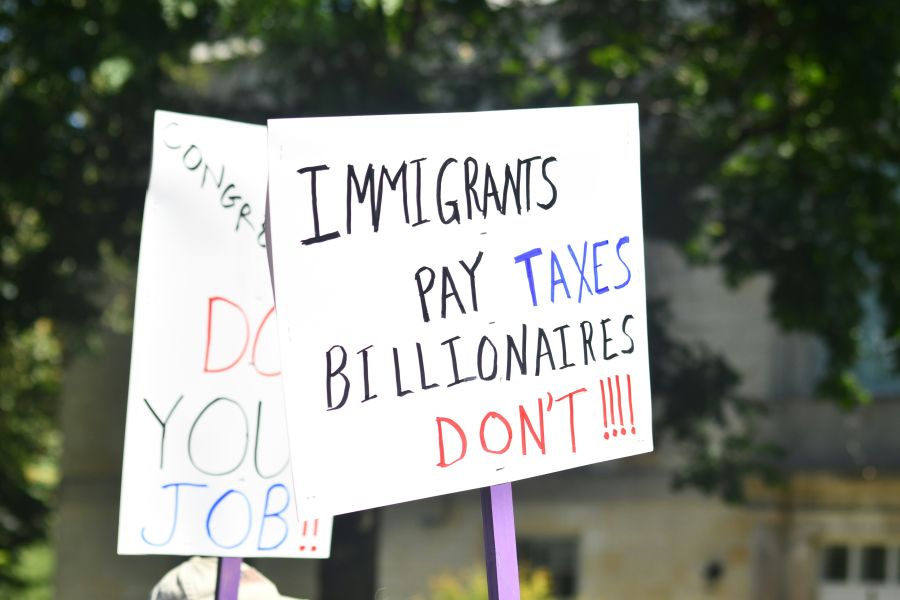 CONGRE
DO
YOU
JOB!!
IMMIGRANTS
PAY TAXES
BILLIONAIRES
DON'T!!!!